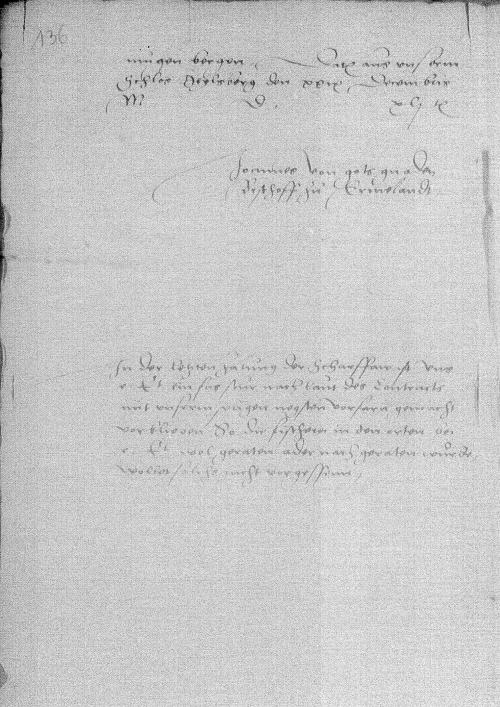 136
mugen bergen, Datx aus unserm
Schlos Heilsberg den xxix Decembris
M D xlj tx
Joannes von gots gnaden
Bischoff zu Ermelandt
In der letzten zalung der Scharffaw ist vns
e. Ht ein nach laut des Contracts
mit vnserm negsten vorfarn gemacht
vorblieben So die fischerei in den orten bei
e. Ht wol geraten ader nach geraten wurde,
wollet solchs nicht vorgessenn,